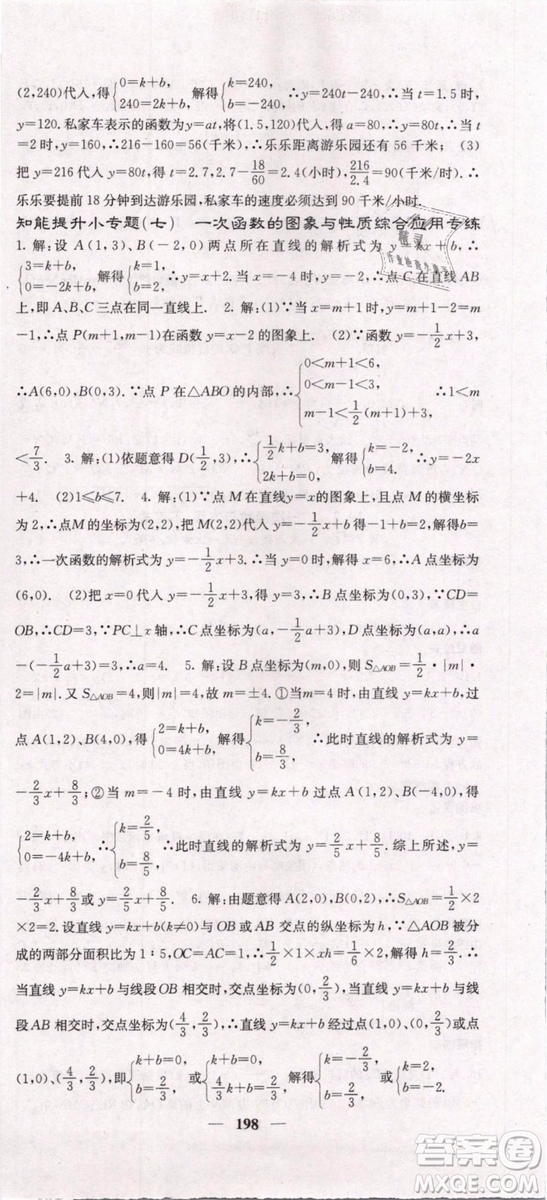 (2,240)代入,得{0=k+b, 240=2k+b. 解得{k=240, b=-240. ∴y=240t-240,∴当 t=1.5 时,
y=120. 私家车表示的函数为 y=at,将(1.5,120)代入,得 a=80,∴y=80t,∴当
t=2 时,y=160,∴216-160=56(千米),∴乐乐距离游乐园还有 56 千米; (3)
把 y=216 代入 y=80t,得 t=2.7. 2.7-18/60=2.4(小时),216/2.4=90(千米/时).∴
乐乐要提前 18 分钟到达游乐园,私家车的速度必须达到 90 千米/时.
知能提升小专题(七) 一次函数的图象与性质综合应用专练
1. 解:设 A(1,3)、B(-2,0)两点所在直线的解析式为 y=kx+b,∴
{3=k+b, 0=-2k+b. 解得{k=1, b=2. ∴y=x+2. 当 x=0 时,y=2,∴点 C 在直线 AB
上,即点 A、B、C 三点在同一直线上. 2. 解:(1)∵当 x=m+1 时,y=m+1-2=m
-1,∴点 P(m+1,m-1)在函数 y=x-2 的图象上. (2)∵函数 y=-1/2x+3,
∴A(6,0),B(0,3). ∵点 P 在△ABO 的内部,∴{0<m+1<6, 0<m-1<3, m-1<-1/2(m+1)+3, ∴1<m
<7/3. 3. 解:(1)依题意得 D(1/2,3),∴{1/2k+b=3, 2k+b=0. 解得{k=-2, b=4. ∴y=-2x
+4. (2)1≤b≤7. 4. 解:(1)∵点 M 在直线y=x的图象上,且点 M 的横坐标
为 2,∴点 M 的坐标为(2,2),把 M(2,2)代入 y=-1/2x+b,得-1+b=2. 解得b
=3,∴一次函数的解析式为 y=-1/2x+3,∴当 y=0 时,解得 x=6,∴A 点坐标为
(6,0). (2)把 x=0 代入 y=-1/2x+3,得 y=3,∴B 点坐标为(0,3). ∵CD=
OB,∴CD=3. ∵PC⊥x 轴,∴C 点坐标为(a,-1/2a+3),D 点坐标为(a,a),∴a
-(-1/2a+3)=3,∴a=4. 5. 解:设 B 点坐标为(m,0),则 S△AOB=1/2·|m|·
2=|m|. 又 S△AOB=4,则|m|=4,故 m=±4. ①当 m=4 时,由直线 y=kx+b,过
点 A(1,2)、B(4,0),得{2=k+b, 0=4k+b. 解得{k=-2/3, b=8/3. ∴此时直线的解析式为 y=
-2/3x+8/3;②当 m=-4 时,由直线 y=kx+b 过点 A(1,2)、B(-4,0),得
{2=k+b, 0=-4k+b, ∴{k=2/5, b=8/5. ∴此时直线的解析式为 y=2/5x+8/5. 综上所述,y=
-2/3x+8/3或 y=2/5x+8/5. 6. 解:由题意得 A(2,0),B(0,2),∴S△AOB=1/2×2
×2=2. 设直线 y=kx+b(k≠0)与 OB 或 AB 交点的纵坐标为 h,∵△AOB 被分
成的两部分面积比为 1∶5,OC=AC=1,∴1/2×1×h=1/6×2,∴h=2/3,∴
当直线 y=kx+b 与线段 OB 相交时,交点坐标为(0,2/3),当直线 y=kx+b 与线
段 AB 相交时,交点坐标为(4/3,2/3),∴直线 y=kx+b 经过点(1,0),(0,2/3)或点
(1,0)、(4/3,2/3),即{k+b=0, b=2/3, 或{k+b=0, 4/3k+b=2/3, 解得{k=-2/3, b=2/3, 或{k=2, b=-2.
198
答案圈
MXQE.COM